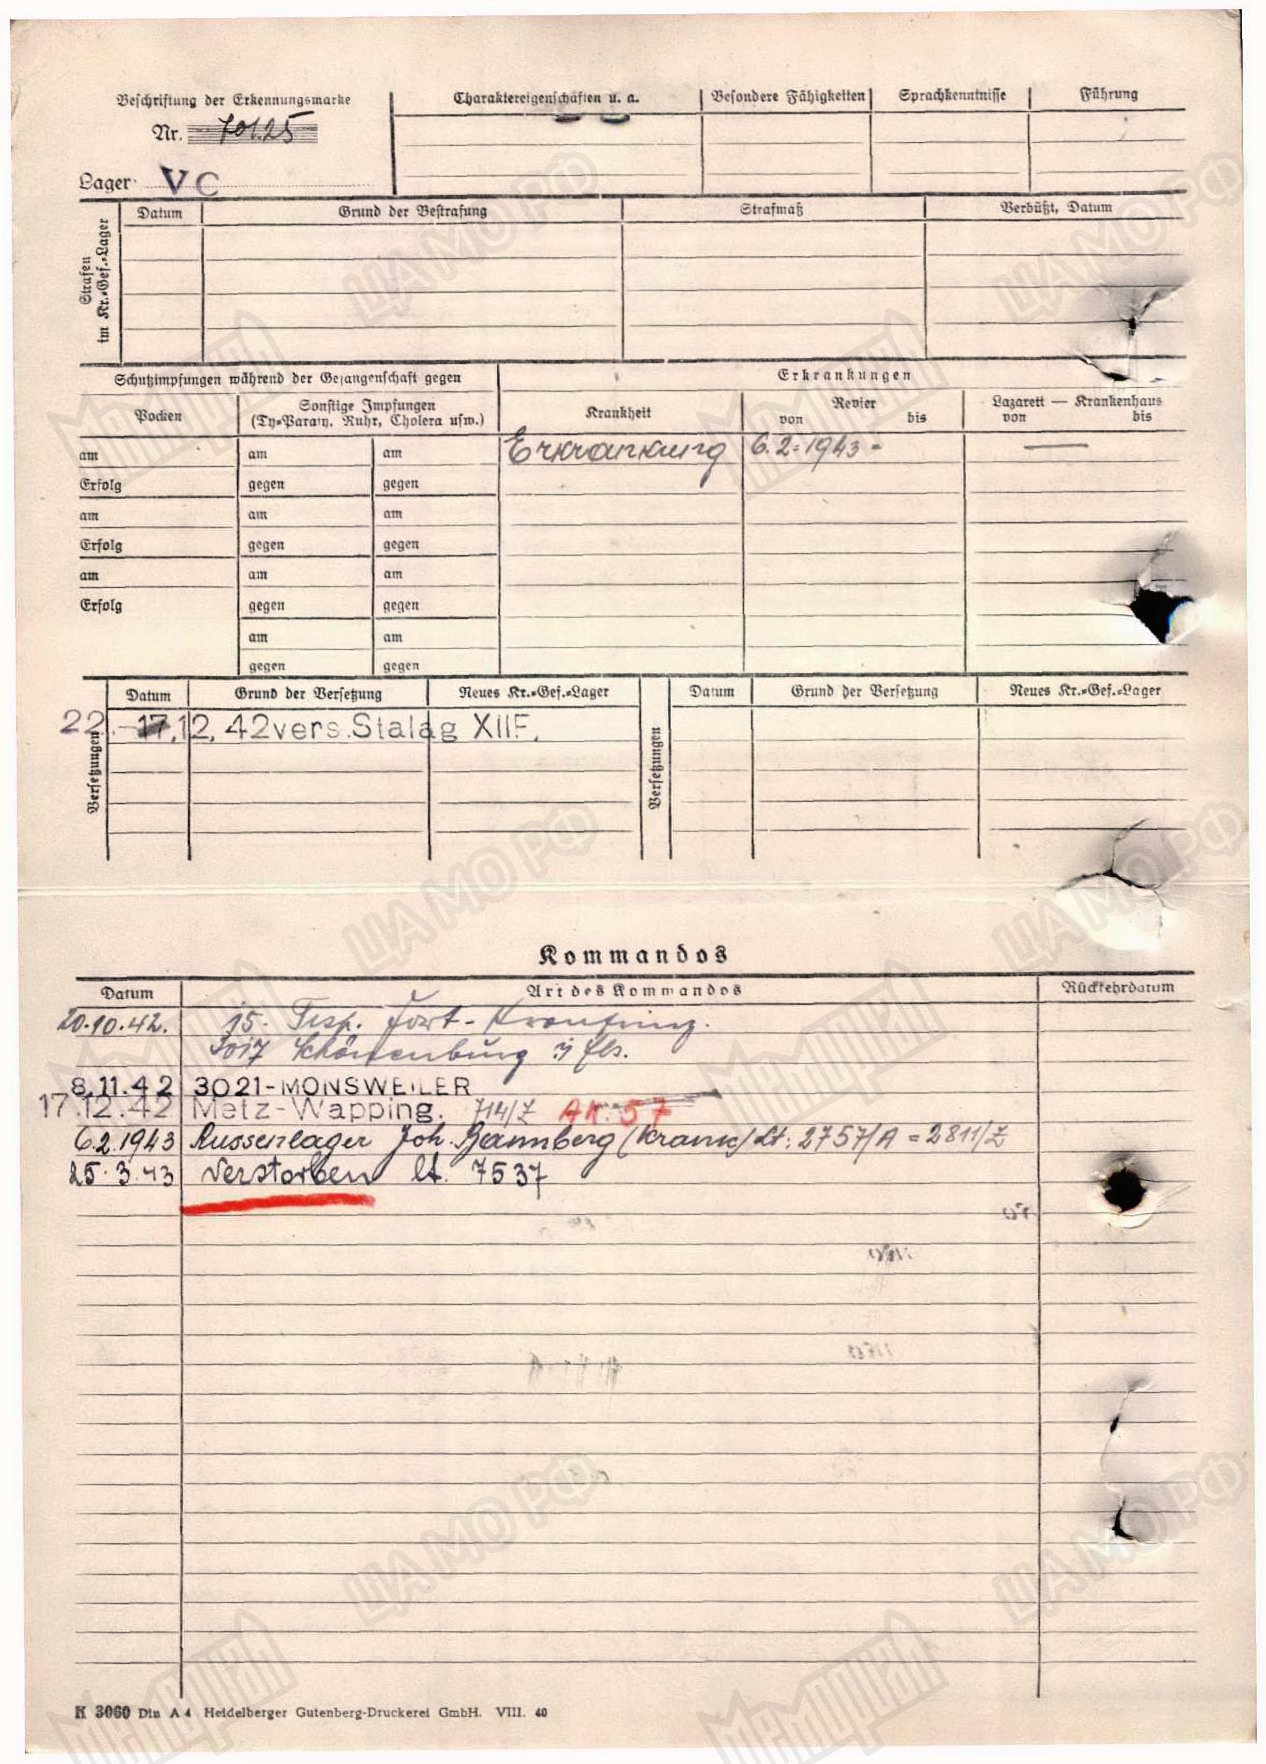 Beschriftung der Erkennungsmarke
Nr. 70125
Lager: VC
Charaktereigenschaften u. a. Besondere Fähigkeiten Sprachkenntnisse Führung
Strafen im Kr.=Gef.=Lager
Datum Grund der Bestrafung Strafmaß Verbüßt, Datum
Schutzimpfungen während der Gefangenschaft gegen
Erkrankungen
Pocken
Sonstige Impfungen
(Ty=Paraty, Ruhr, Cholera usw.)
Krankheit
Revier
von bis
Lazarett — Krankenhaus
von bis
am am am Erkrankung 6.2.1943 - —
Erfolg gegen gegen
am am am
Erfolg gegen gegen
am am am
Erfolg gegen gegen
am am
gegen gegen
Versetzungen
Datum Grund der Versetzung Neues Kr.=Gef.=Lager
22. 17.12.42 vers. Stalag XIIF.
Versetzungen
Datum Grund der Versetzung Neues Kr.=Gef.=Lager
Kommandos
Datum Art des Kommandos Rückkehrdatum
20.10.42. 15. Fort-Kronprinz.
3017 Schönenburg
8.11.42 3021-MONSWEILER
17.12.42 Metz-Wapping. 714/Z AK. 57
6.2.1943 Russenlager Joh. Bannberg (krank) Lt: 2757/A = 2811/Z
25.3.43 verstorben lt. 7537
K 3060 Din A 4 Heidelberger Gutenberg-Druckerei GmbH. VIII. 40
ЦАМО РФ
Мемориал